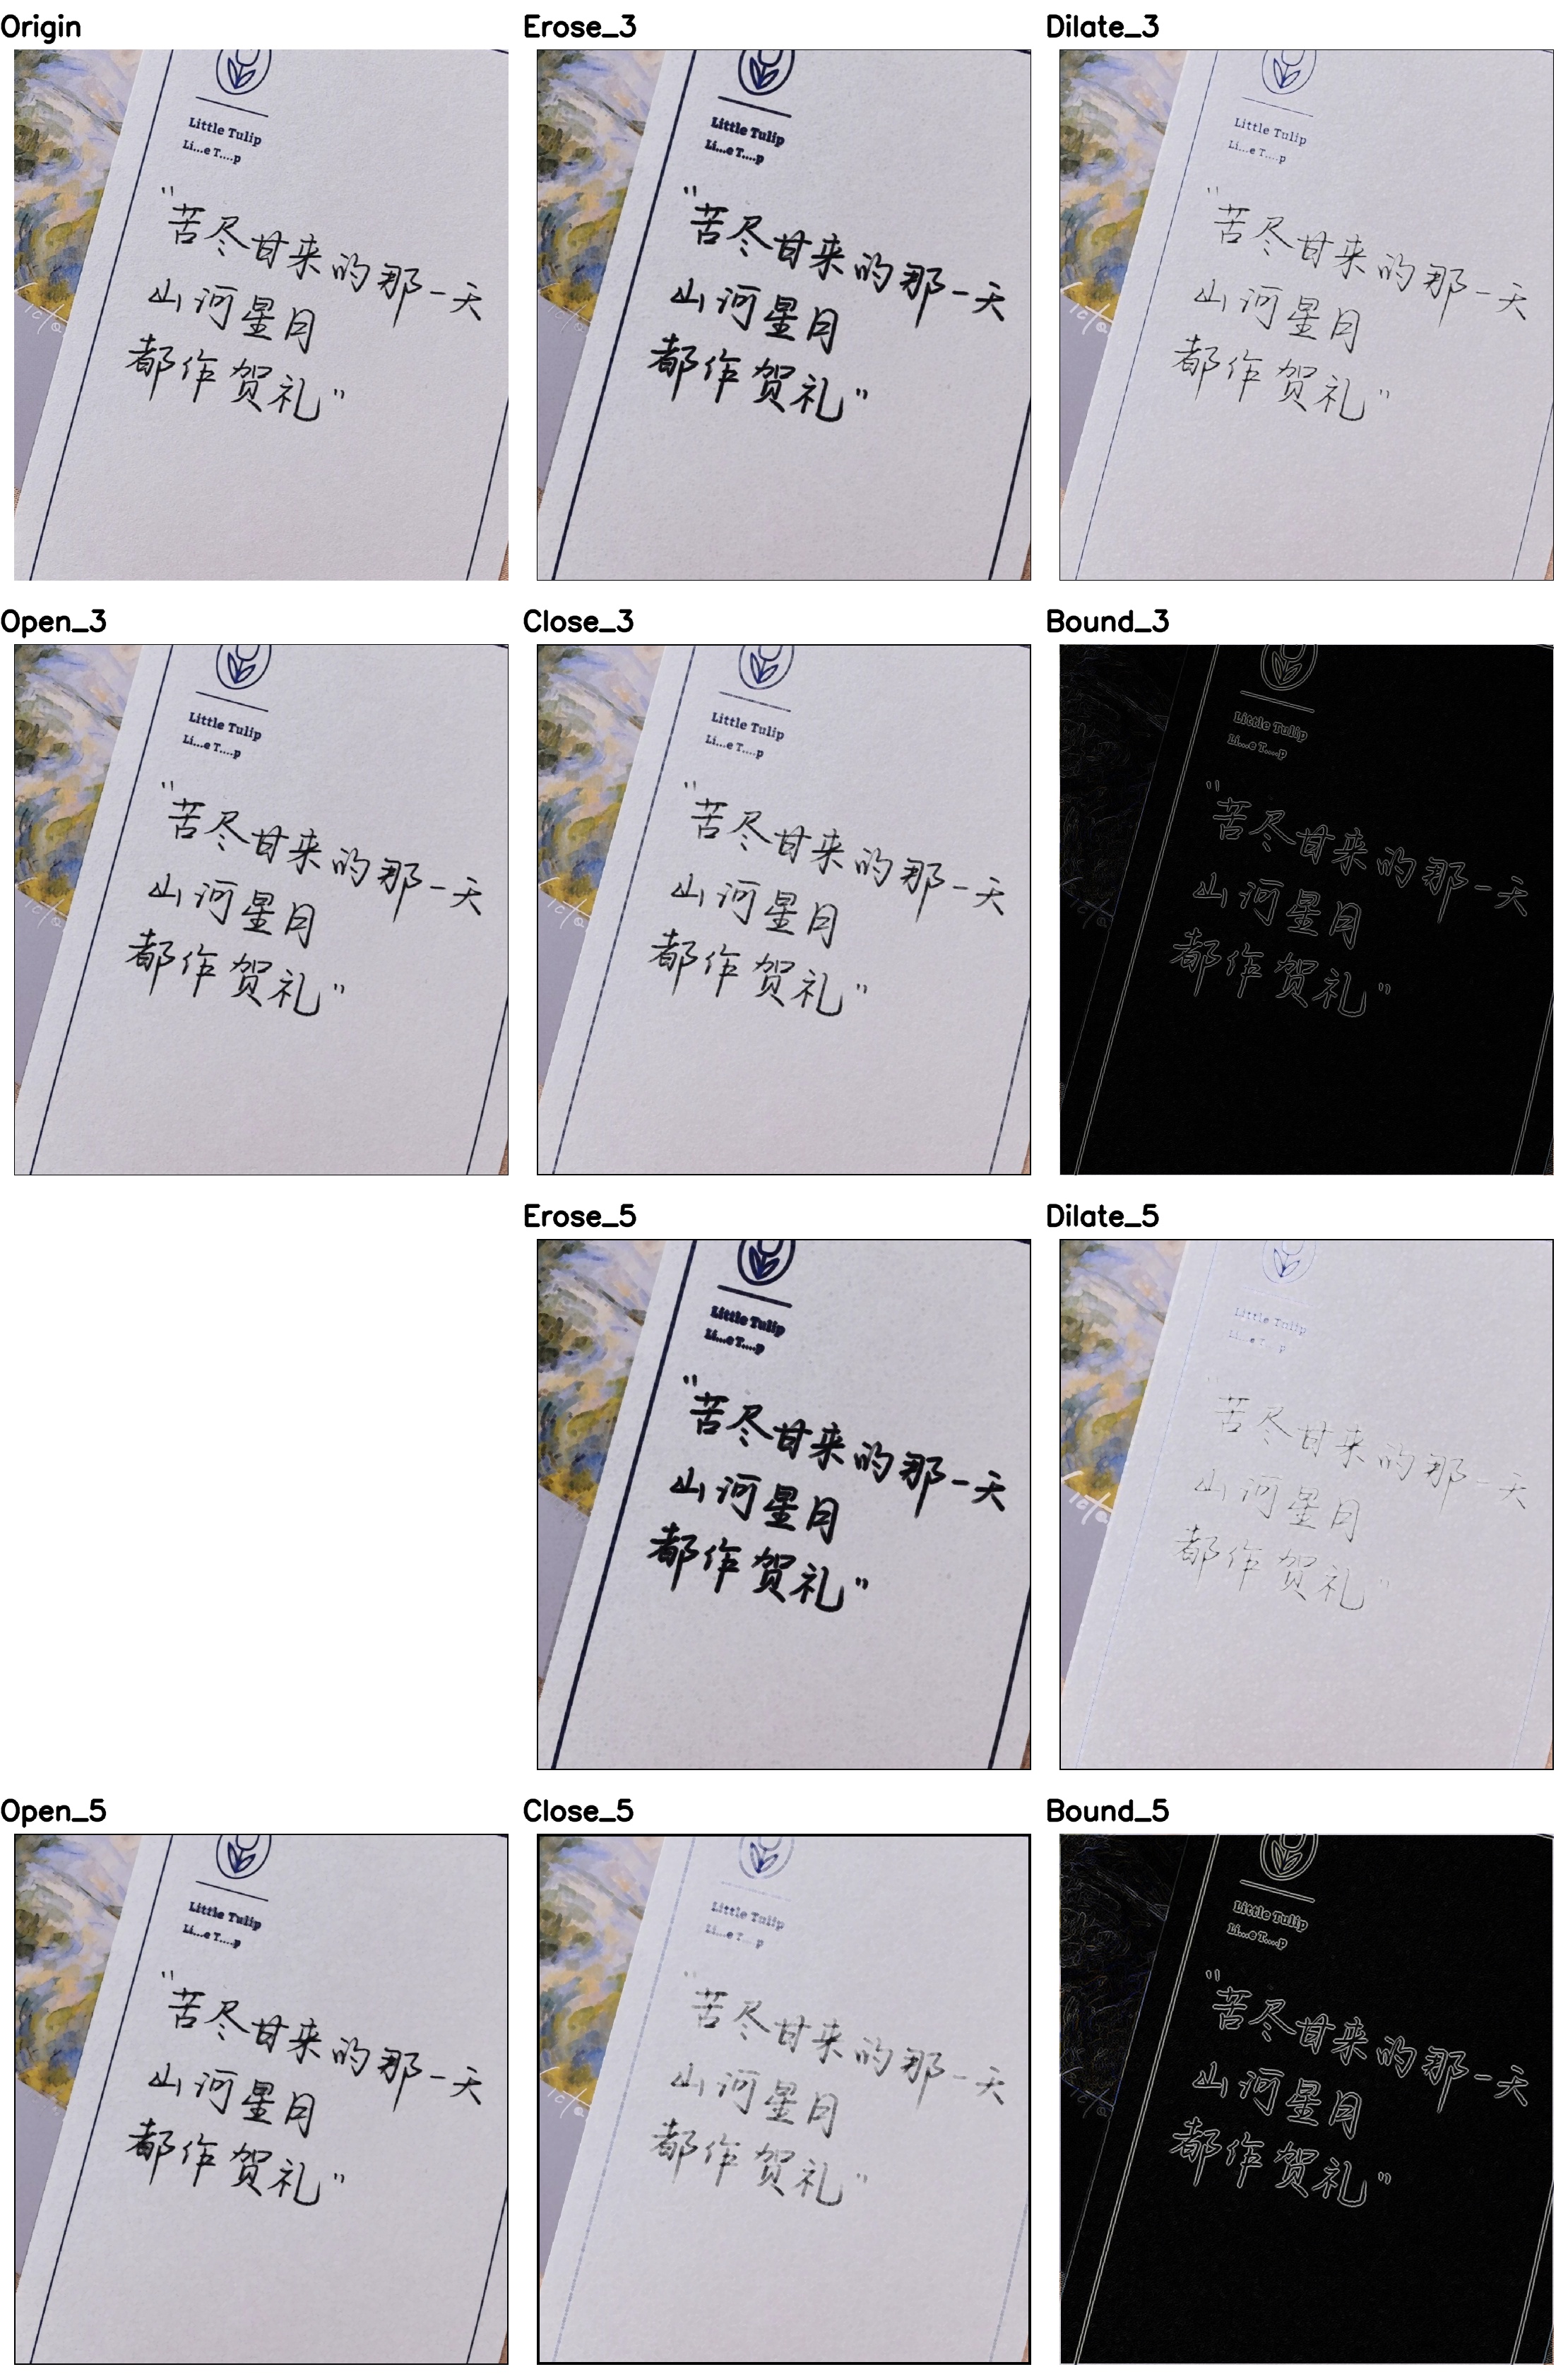 Origin
Little Tulip
Li...e T....p
"苦尽甘来的那一天
山河星月
都作贺礼"
Erose_3
Little Tulip
Li...e T....p
"苦尽甘来的那一天
山河星月
都作贺礼"
Dilate_3
Little Tulip
Li...e T....p
"苦尽甘来的那一天
山河星月
都作贺礼"
Open_3
Little Tulip
Li...e T....p
"苦尽甘来的那一天
山河星月
都作贺礼"
Close_3
Little Tulip
Li...e T....p
"苦尽甘来的那一天
山河星月
都作贺礼"
Bound_3
Little Tulip
Li...e T....p
"苦尽甘来的那一天
山河星月
都作贺礼"
Erose_5
Little Tulip
Li...e T....p
"苦尽甘来的那一天
山河星月
都作贺礼"
Dilate_5
Little Tulip
Li...e T p
"苦尽甘来的那一天
山河星月
都作贺礼"
Open_5
Little Tulip
Li...e T....p
"苦尽甘来的那一天
山河星月
都作贺礼"
Close_5
Little Tulip
Li...e T p
"苦尽甘来的那一天
山河星月
都作贺礼"
Bound_5
Little Tulip
Li...e T....p
"苦尽甘来的那一天
山河星月
都作贺礼"